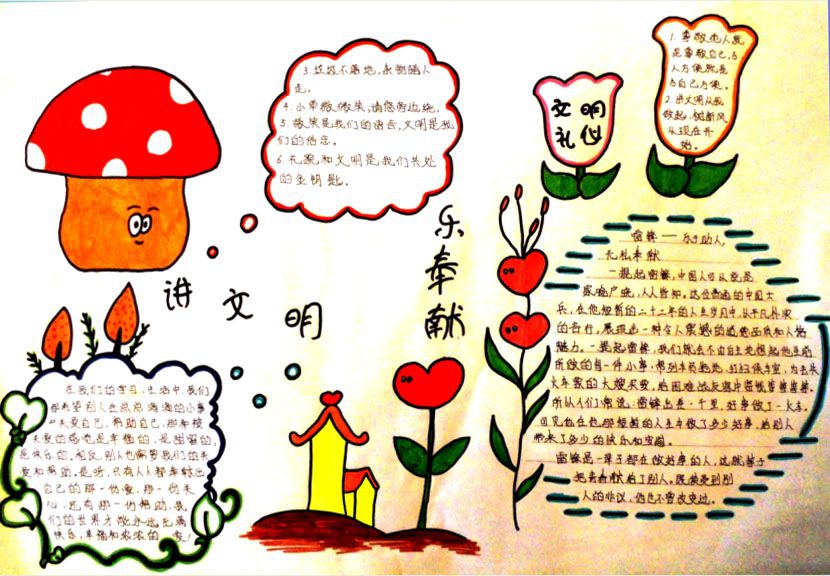 3. 垃圾不落地,永别随人
走。
4. 小草微微笑,请您旁边绕。
5. 微笑是我们的语言,文明是我
们的信念。
6. 礼貌和文明是我们共处
的金钥匙。
文明
礼仪
1. 尊敬他人就
是尊敬自己,与
人方便就是
与自己方便。
2. 讲文明从我
做起,树新风
从现在开
始。
讲文明
乐奉献
在我们的学习,生活中,我们
都希望别人在点点滴滴的小事
中关爱自己,帮助自己,那种被
关爱的感觉是幸福的,是甜蜜的,
是快乐的,相反,别人也需要我们的关
爱和帮助,是呀,只有人人都奉献出
自己的那一份爱,那一份关
心,还有那一份帮助,我
们的世界才能永远充满
快乐,幸福和浓浓的爱!
雷锋——乐于助人,
无私奉献
一提起雷锋,中国人可以说是
家喻户晓,人人皆知。这位普通的中国士
兵,在他短暂的二十二年的人生岁月中,从平凡朴实
的言行,展现出一种令人震撼的道德品质和人格
魅力。一提起雷锋,我们就会不由自主地想起他生前
所做的每一件小事:帮列车员拖地,打扫候车室,为丢失
火车票的大嫂买票,给困难战友
所以人们常说:雷锋出差一千里,好事做了一火车。
可见他在他那短暂的人生中做了多少好事,给别人
带来了多少的快乐和安慰。
雷锋是一辈子都在做好事的人,这就等于
把青春献给了别人。既使受到别
人的非议,他也不曾改变过。